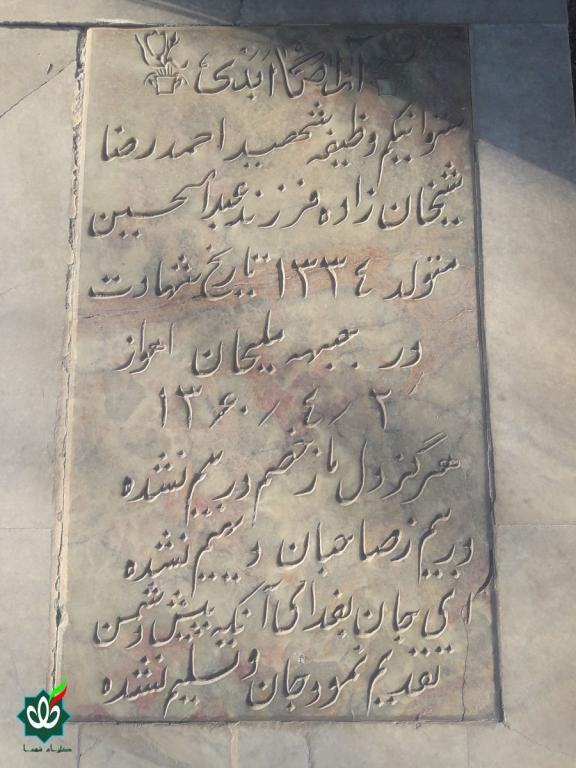 آرامگاه ابدی
ستوانیکم وظیفه شهید احمد رضا
شیخان زاده فرزند عبدالحسین
متولد ۱۳۳٤ تاریخ شهادت
در جبهه ملیحان اهواز
۲ / ٤ / ۱۳۶۰
هرگز دل ما ز خصم در بیم نشده
در بیم ز صاحبان دیهیم نشده
ای جان بفدای آنکه پیش دشمن
تقدیم نمود جان و تسلیم نشده
گلزار شهدا